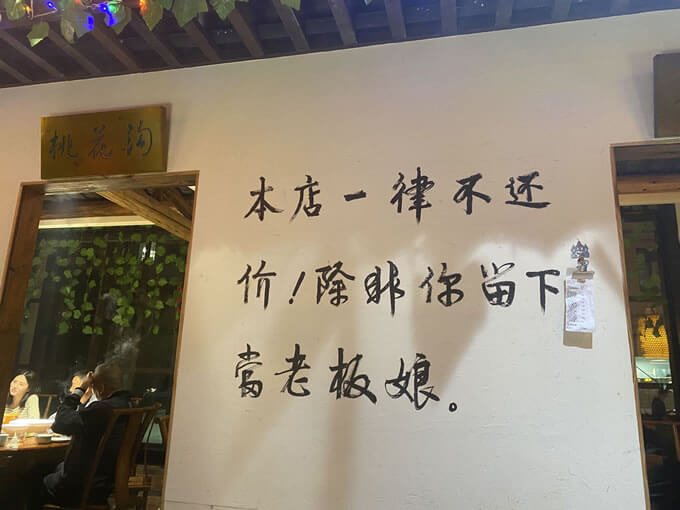 桃花沟
本店一律不还
价！除非你留下
當老板娘。